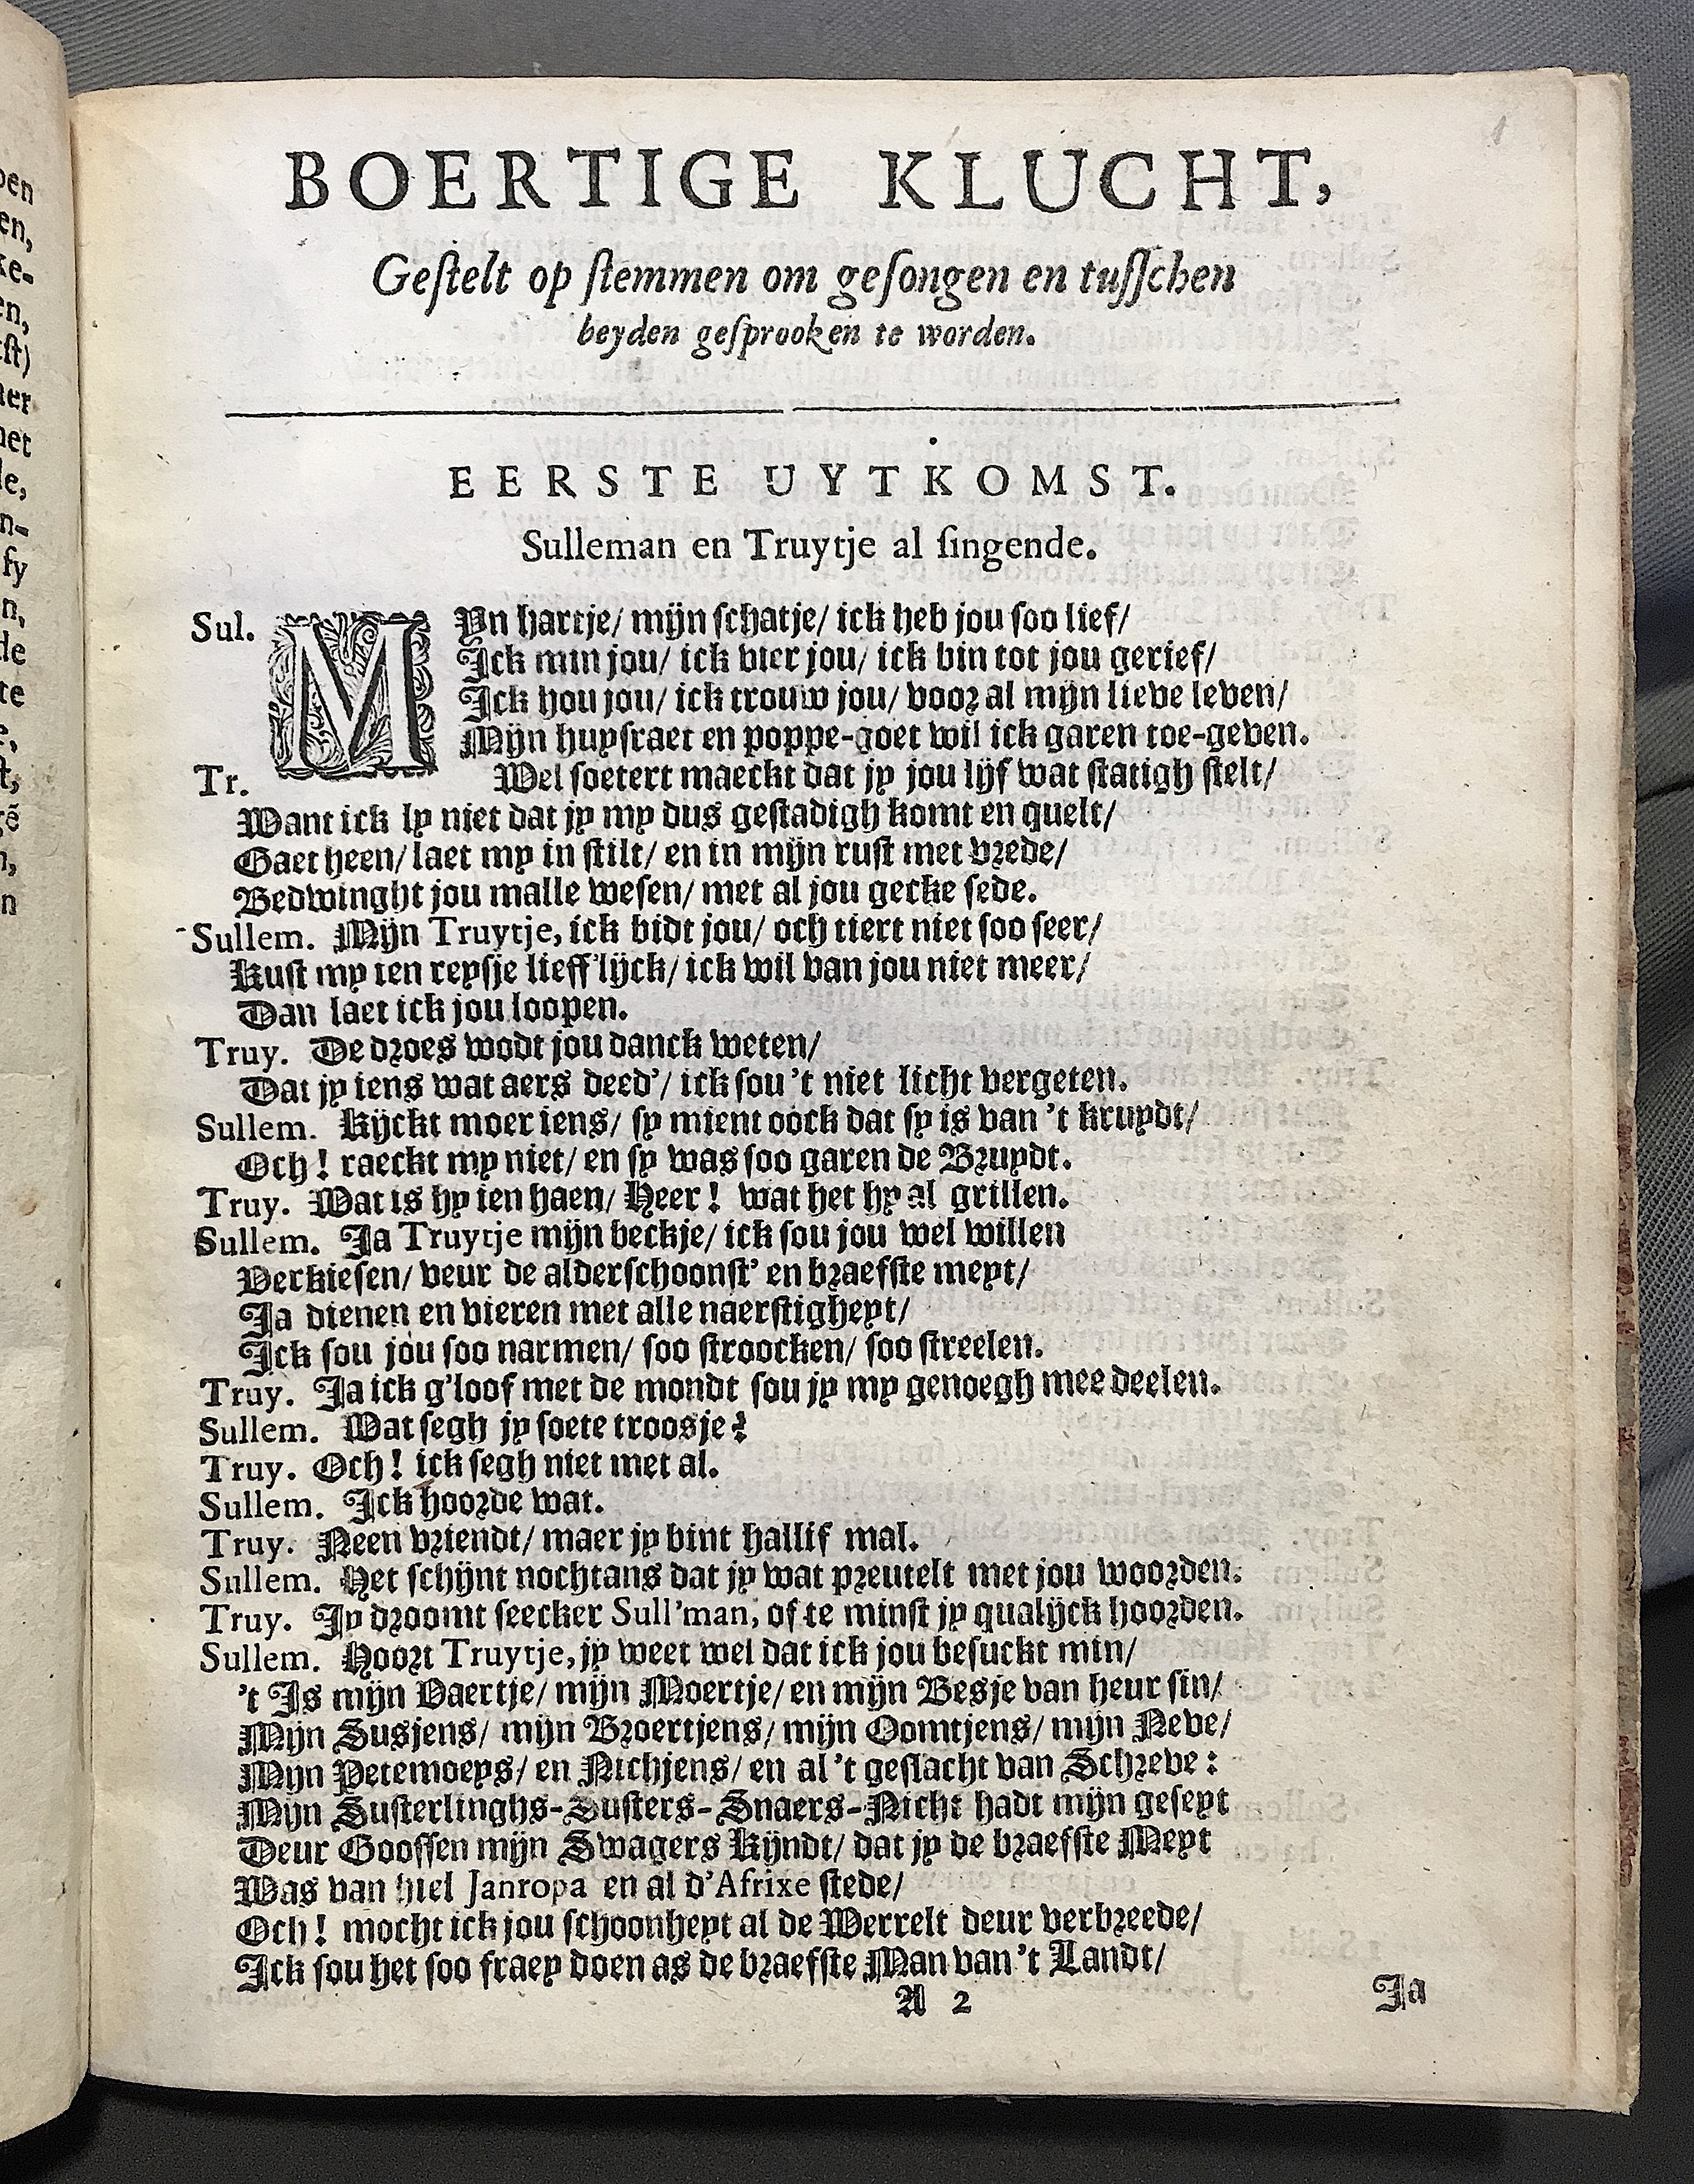 BOERTIGE KLUCHT,
Geſtelt op ſtemmen om geſongen en tuſſchen
beyden geſprooken te worden.
EERSTE UYTKOMST.
Sulleman en Truytje al ſingende.
Sul. MYn hartje/ mijn ſchatje/ ick heb jou ſoo lief/
Ick min jou/ ick vier jou/ ick bin tot jou gerief/
Ick hou jou/ ick trouw jou/ voor al mijn lieve leven/
Mijn huyſraet en poppe-goet wil ick garen toe-geven.
Tr. Wel ſoetert maeckt dat jy jou lijf wat ſtatigh ſtelt/
Want ick ly niet dat jy my dus geſtadigh komt en quelt/
Gaet heen/ laet my in ſtilt/ en in mijn ruſt met vrede/
Bedwinght jou malle weſen/ met al jou gecke ſede.
Sullem. Mijn Truytje, ick bidt jou/ och tiert niet ſoo ſeer/
Kuſt my ien reysje lieff'lijck/ ick wil van jou niet meer/
Dan laet ick jou loopen.
Truy. De droes wodt jou danck weten/
Dat jy iens wat aers deed'/ ick ſou 't niet licht vergeten.
Sullem. Kijckt moer iens/ ſy mient oock dat ſy is van 't kruydt/
Och! raeckt my niet/ en ſy was ſoo garen de Bruydt.
Truy. Wat is hy ien haen/ Heer! wat het hy al grillen.
Sullem. Ja Truytje mijn beckje/ ick ſou jou wel willen
Verkieſen/ veur de alderſchoonſt' en braefſte meyt/
Ja dienen en vieren met alle naerſtigheyt/
Ick ſou jou ſoo narmen/ ſoo ſtroocken/ ſoo ſtreelen.
Truy. Ja ick g'loof met de mondt ſou jy my genoegh mee deelen.
Sullem. Wat ſegh jy ſoete troosje?
Truy. Och! ick ſegh niet met al.
Sullem. Ick hoorde wat.
Truy. Neen vriendt/ maer jy bint hallif mal.
Sullem. Het ſchijnt nochtans dat jy wat preutelt met jou woorden.
Truy. Jy droomt ſeecker Sull'man, of te minſt jy qualijck hoorden.
Sullem. Hoort Truytje, jy weet wel dat ick jou beſuckt min/
't Is mijn Vaertje/ mijn Moertje/ en mijn Besje van heur ſin/
Mijn Susjens/ mijn Broertjens/ mijn Oomtjens/ mijn Neve/
Mijn Petemoeys/ en Nichjens/ en al 't geſlacht van Schreve:
Mijn Suſterlinghs-Suſters-Snaers-Nicht hadt mijn geſeyt
Deur Gooſſen mijn Swagers Kijndt/ dat jy de braefſte Meyt
Was van hiel Janropa en al d'Afrixe ſtede/
Och! mocht ick jou ſchoonheyt al de Werrelt deur verbreede/
Ick ſou het ſoo fraey doen as de braefſte Man van 't Landt/
A 2
Ja